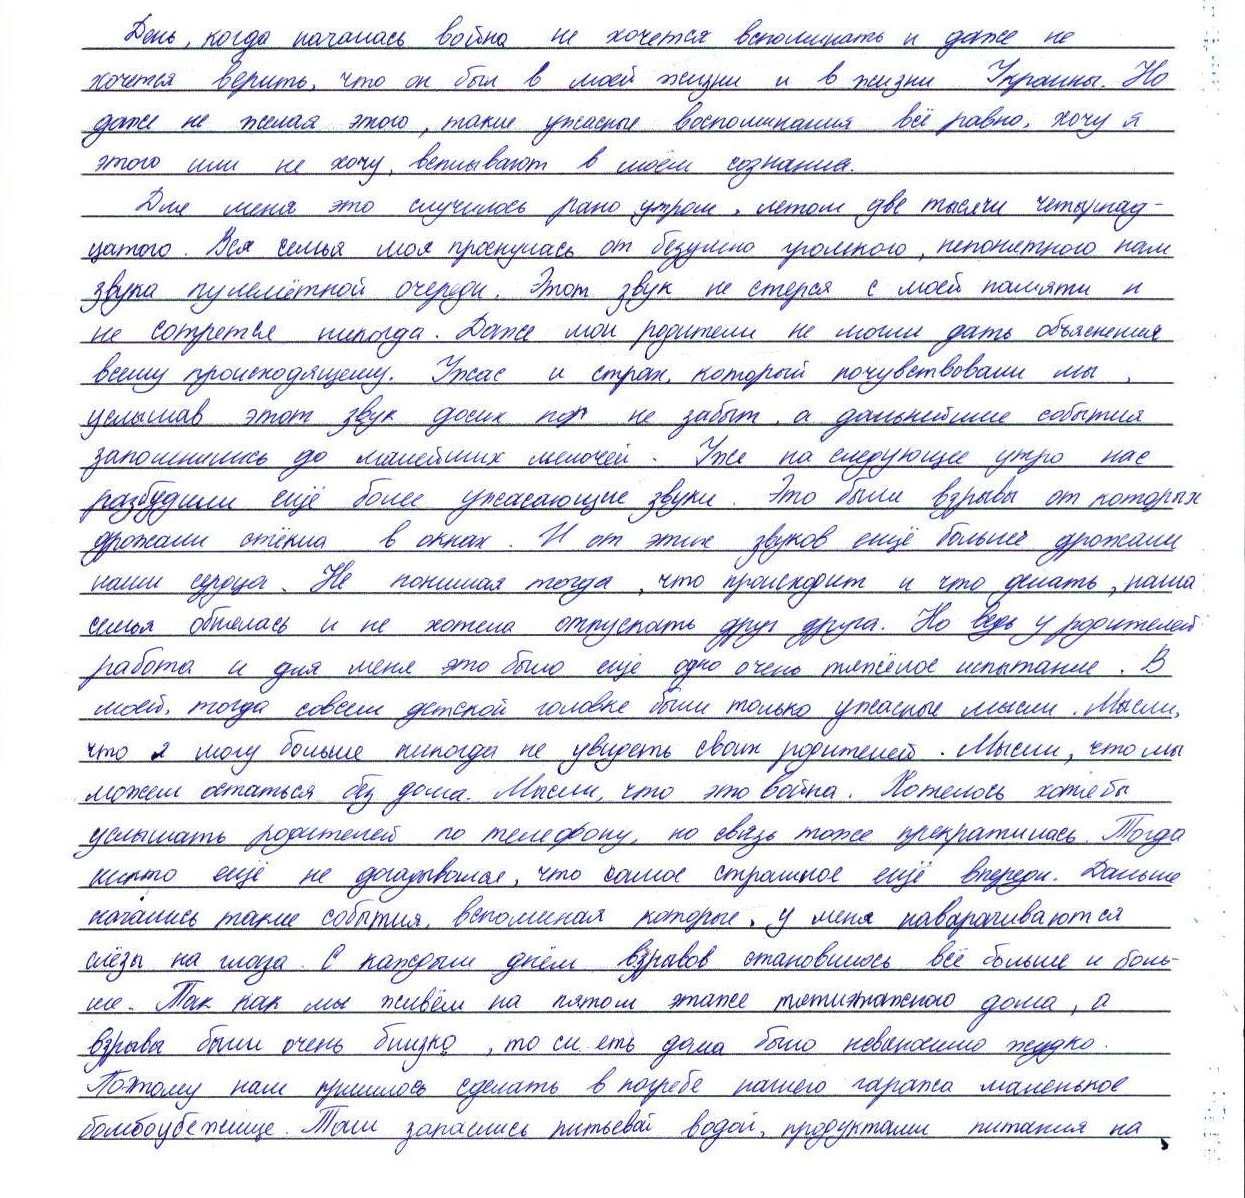 День, когда началась война не хочется вспоминать и даже не
хочется верить, что он был в моей жизни и в жизни Украины. Но
даже не желая этого, такие ужасные воспоминания всё равно, хочу я
этого или не хочу, всплывают в моём сознании.
Для меня это случилось рано утром, летом две тысячи четырнад-
цатого. Вся семья моя проснулась от безумно громкого, непонятного нам
звука пулемётной очереди. Этот звук не стерся с моей памяти и
не сотрется никогда. Даже мои родители не могли дать объяснения
всему происходящему. Ужас и страх, который почувствовали мы,
услышав этот звук досих пор не забыт, а дальнейшие события
запомнились до малейших мелочей. Уже на следующее утро нас
разбудили ещё более ужасающие звуки. Это были взрывы от которых
дрожали стёкла в окнах. И от этих звуков ещё больше дрожали
наши сердца. Не понимая тогда, что происходит и что делать, наша
семья обнялась и не хотела отпускать друг друга. Но ведь у родителей
работа и для меня это было еще одно очень тяжёлое испытание. В
моей, тогда совсем детской головке были только ужасные мысли. Мысли,
что я могу больше никогда не увидеть своих родителей. Мысли, что мы
можем остаться без дома. Мысли, что это война. Хотелось хотебы
услышать родителей по телефону, но связь тоже прекратилась. Тогда
никто ещё не догадывался, что самое страшное ещё впереди. Дальше
начались такие события, вспоминая которые, у меня наварачиваются
слёзы на глаза. С каждым днём взравов становилось всё больше и боль-
ше. Так как мы живём на пятом этаже пятиэтажного дома, а
взрывы были очень близко, то си еть дома было невыносимо жудко.
Поэтому нам пришлось сделать в погребе нашего гаража маленькое
бомбоубежище. Там запаслись питьевой водой, продуктами питания на